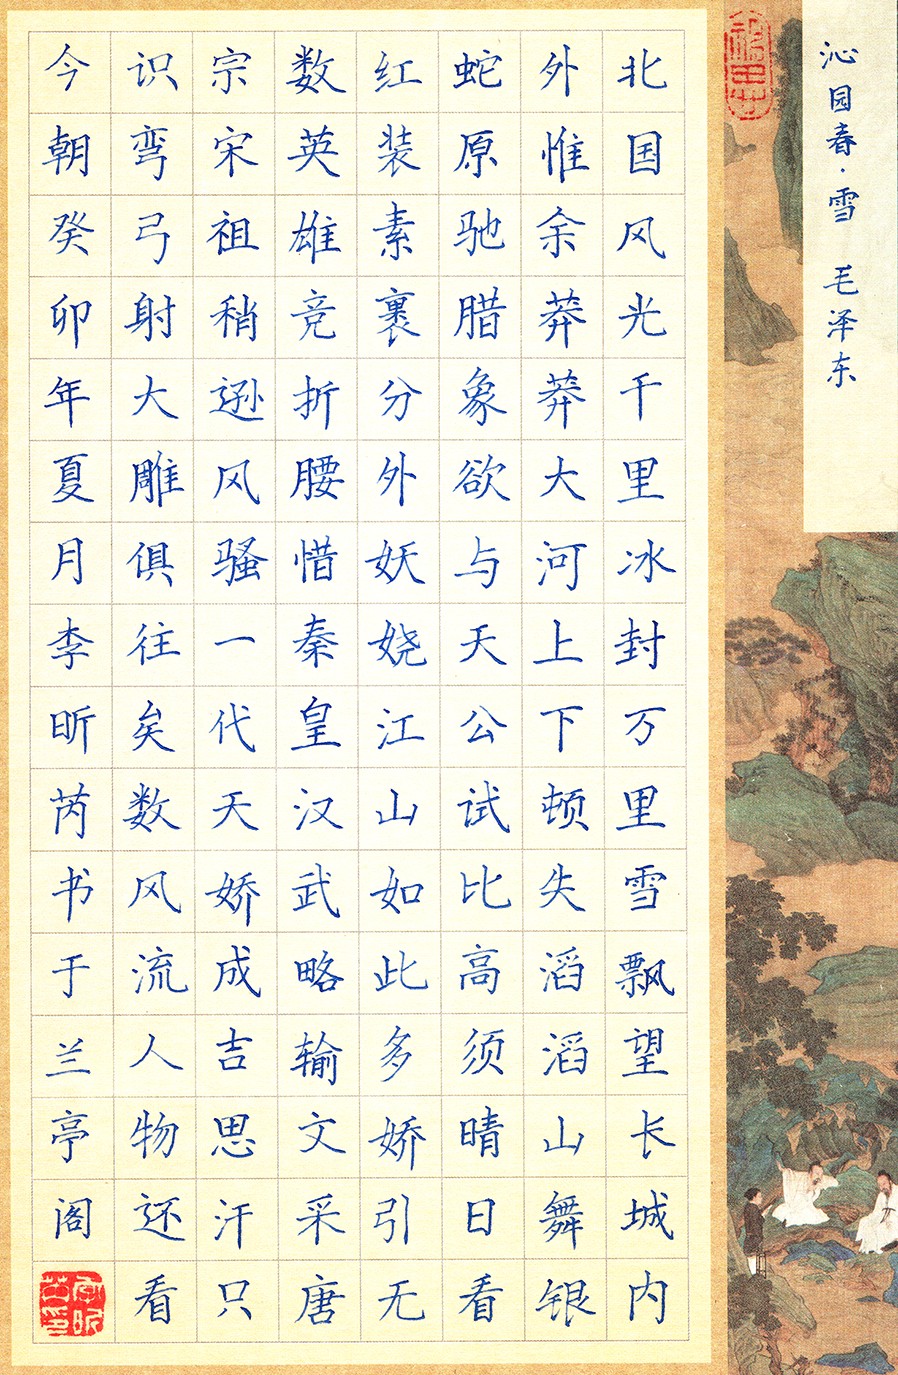 沁园春·雪 毛泽东
北国风光千里冰封万里雪飘望长城内
外惟余莽莽大河上下顿失滔滔山舞银
蛇原驰腊象欲与天公试比高须晴日看
红装素裹分外妖娆江山如此多娇引无
数英雄竞折腰惜秦皇汉武略输文采唐
宗宋祖稍逊风骚一代天娇成吉思汗只
识弯弓射大雕俱往矣数风流人物还看
今朝癸卯年夏月李昕芮书于兰亭阁
李昕芮印